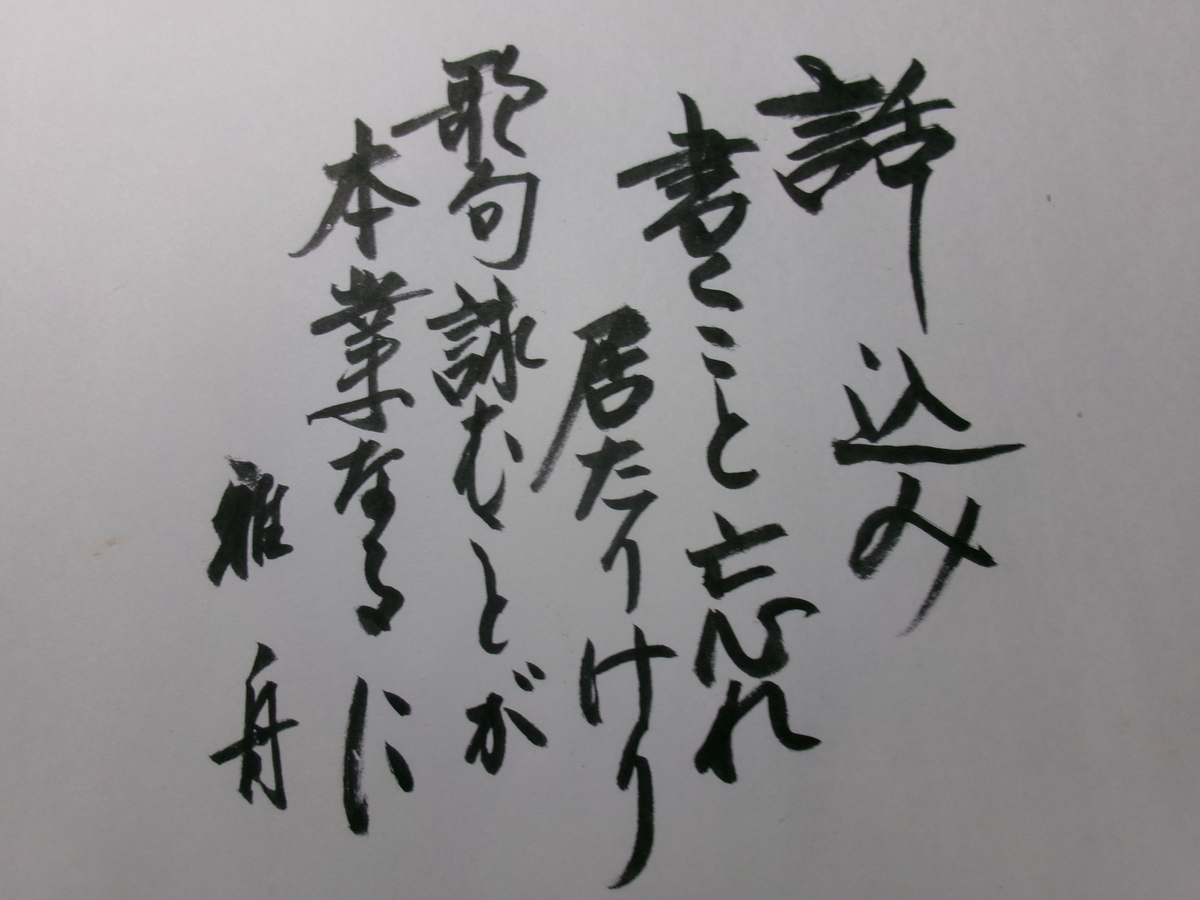 話込み
書くこと忘れ
居たりけり
歌句詠むとが
本業なるに
雅舟